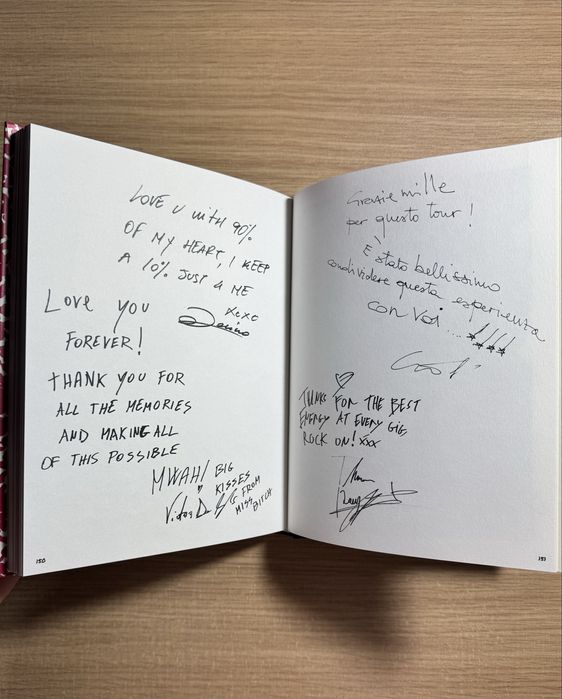 LOVE U WITH 90%
OF MY HEART, I KEEP
A 10% JUST 4 ME
XOXO
LOVE YOU
FOREVER!
THANK YOU FOR
ALL THE MEMORIES
AND MAKING ALL
OF THIS POSSIBLE
MWAH! BIG
KISSES
FROM
MISS
BITCH
150
Grazie mille
per questo tour!
È stato bellissimo
condividere questa esperienza
con voi ...!!!!
THANKS FOR THE BEST
ENERGY AT EVERY GIG
ROCK ON! xxx
151